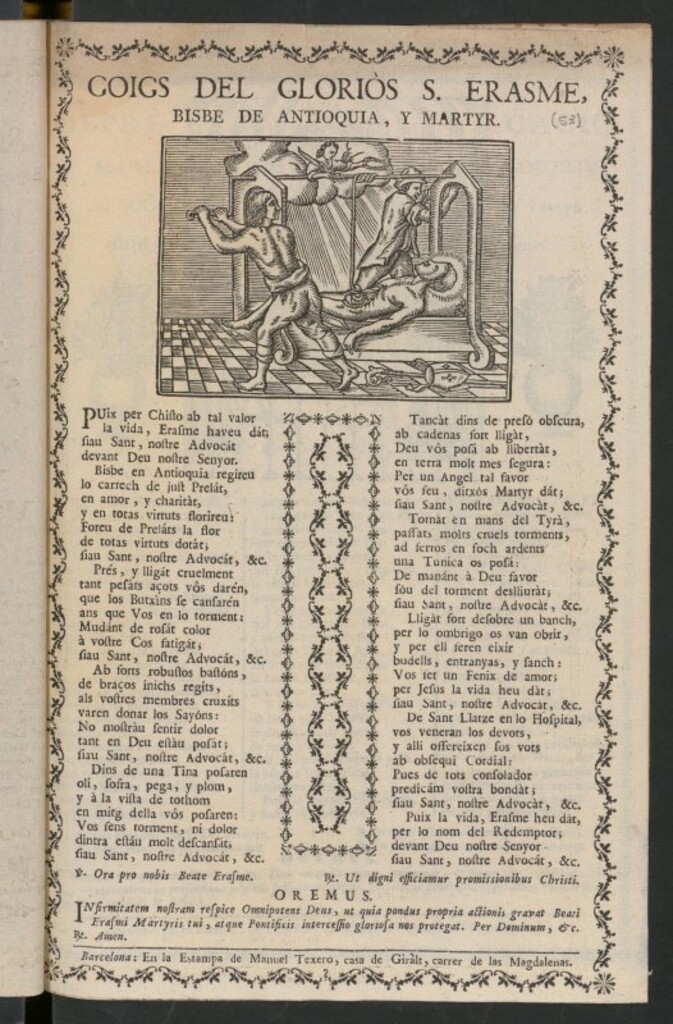 GOIGS DEL GLORIÒS S. ERASME,
BISBE DE ANTIOQUIA, Y MARTYR.
(53)
PUix per Chiſto ab tal valor
la vida, Eraſme haveu dát;
ſiau Sant, noſtre Advocát
devant Deu noſtre Senyor.
Bisbe en Antioquia regireu
lo carrech de juſt Prelát,
en amor, y charitàt,
y en totas virtuts florireu:
Foreu de Preláts la flor
de totas virtuts dotát;
ſiau Sant, noſtre Advocát, &c.
Prés, y lligát cruelment
tant peſáts açots vós darén,
que los Butxins ſe canſarén
ans que Vos en lo torment:
Mudánt de roſát color
à voſtre Cos fatigát;
ſiau Sant, noſtre Advocát, &c.
Ab forts robuſtos baſtóns,
de braços inichs regits,
als voſtres membres cruxits
varen donar los Sayóns:
No moſtràu ſentir dolor
tant en Deu eſtàu poſát;
ſiau Sant, noſtre Advocát, &c.
Dins de una Tina poſaren
oli, ſofra, pega, y plom,
y à la viſta de tothom
en mitg della vós poſaren:
Vos ſens torment, ni dolor
dintra eſtáu molt deſcanſát;
ſiau Sant, noſtre Advocát, &c.
Tancàt dins de preſó obſcura,
ab cadenas fort lligàt,
Deu vós poſà ab llibertàt,
en terra molt mes ſegura:
Per un Angel tal favor
vós feu, ditxós Martyr dát;
ſiau Sant, noſtre Advocàt, &c.
Tornàt en mans del Tyrà,
paſſats molts cruels torments,
ad ferros en foch ardents
una Tunica os poſà:
De manánt à Deu favor
ſòu del torment deslliuràt;
ſiau Sant, noſtre Advocàt, &c.
Lligàt fort deſobre un banch,
per lo ombrigo os van obrir,
y per ell feren eixir
budells, entranyas, y ſanch:
Vos ſet un Fenix de amor;
per Jeſus la vida heu dàt;
ſiau Sant, noſtre Advocàt, &c.
De Sant Llatze en lo Hoſpital,
vos veneran los devots,
y alli offereixen ſos vots
ab obſequi Cordial:
Pues de tots conſolador
predicám voſtra bondàt;
ſiau Sant, noſtre Advocàt, &c.
Puix la vida, Eraſme heu dát,
per lo nom del Redemptor;
devant Deu noſtre Senyor
ſiau Sant, noſtre Advocàt, &c.
℣. Ora pro nobis Beate Eraſme.
℟. Ut digni efficiamur promiſſionibus Chriſti.
OREMUS.
INfirmitatem noſtram reſpice Omnipotens Deus, ut quia pondus propria actionis gravat Beati
Eraſmi Martyris tui, atque Pontificis interceſſio glorioſa nos protegat. Per Dominum, &c.
℟. Amen.
Barcelona: En la Eſtampa de Manuel Texero, casa de Giràlt, carrer de las Magdalenas.